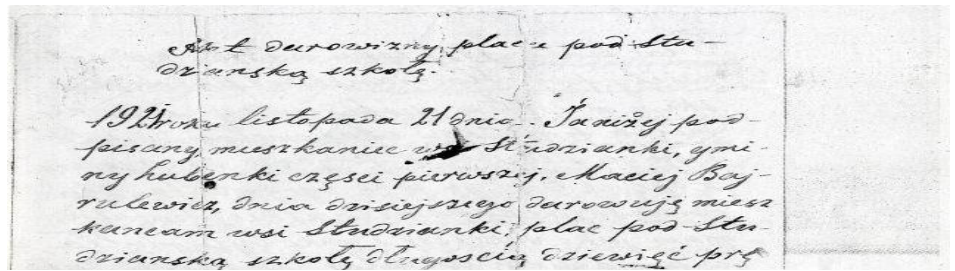 Akt darowizny placu pod Stu-
dzianską szkołę.
1921 roku listopada 21 dnia. Ja niżej pod-
pisany mieszkaniec wsi Studzianki, gmi-
ny hubenki częsci pierwszej, Maciej Baj-
rulewicz, dnia dzisiejszego darowuję miesz
kancam wsi Studzianki, plac pod Stu-
dzianską szkołę długoscią dziewięć prę